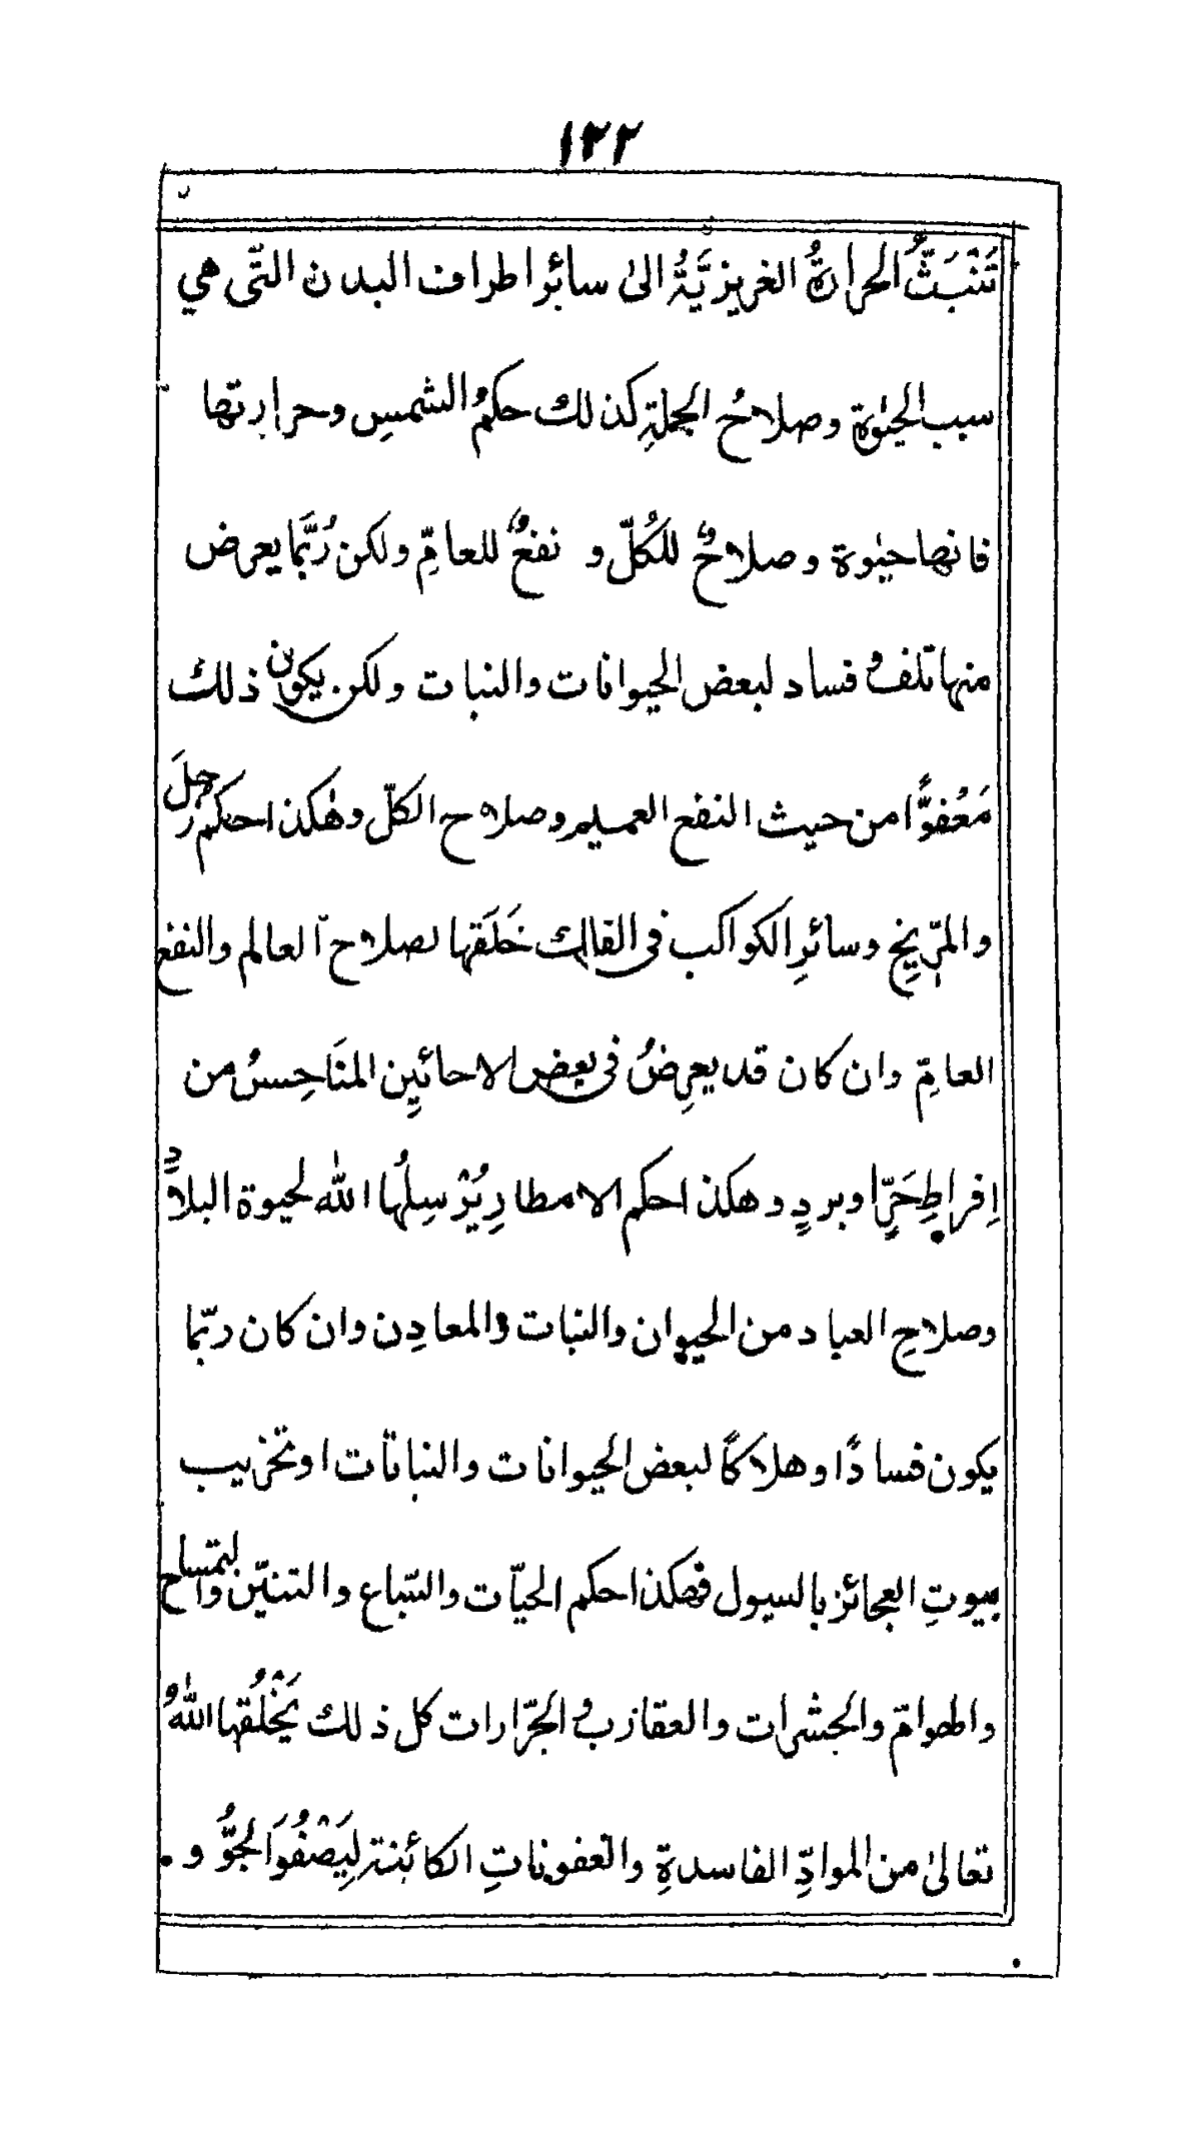 ١٢٢
تَنْبَثُّ الحرارةُ الغريزيَّةُ الىٰ سائر اطراف البدن التّى هي
سبب الحيٰوة وصلاحُ الجملةِ كذلك حكمُ الشمسِ وحرارتها
فانها حيٰوة وصلاحٌ للكُلّ و نفعٌ للعامّ ولكن رُبَّما يعرض
منها تلف و فساد لبعض الحيوانات والنبات ولكن يكون ذلك
مَعْفوًّا من حيث النفع العميم وصلاح الكلّ وهٰكذا حكم زحلَ
والمرّيخِ وسائرِ الكواكب فى الفلك خَلَقَها لصلاح العالم والنفع
العامّ وان كان قد يعرِضُ فى بعض الاحائين المنَاحِسُ من
اِفراطِ حَرٍّ او بردٍ وهكذا حكم الامطارِ يُرْسِلُها الله لحيوة البلادِ
وصلاحِ العباد من الحيوان والنبات والمعادِن وان كان ربّما
يكون فسادًا وهلاكًا لبعض الحيوانات والنباتات او تخريب
بيوتِ العجائز بالسيول فهكذا حكم الحيّات والسّباع والتنيّن والتمساح
والهوامّ والحشرات والعقارب و الجرّارات كل ذلك يَخْلُقُها اللهُ
تعالىٰ من الموادِّ الفاسدةِ والعفوناتِ الكائنة لِيَصْفُوَ الجوُّ و